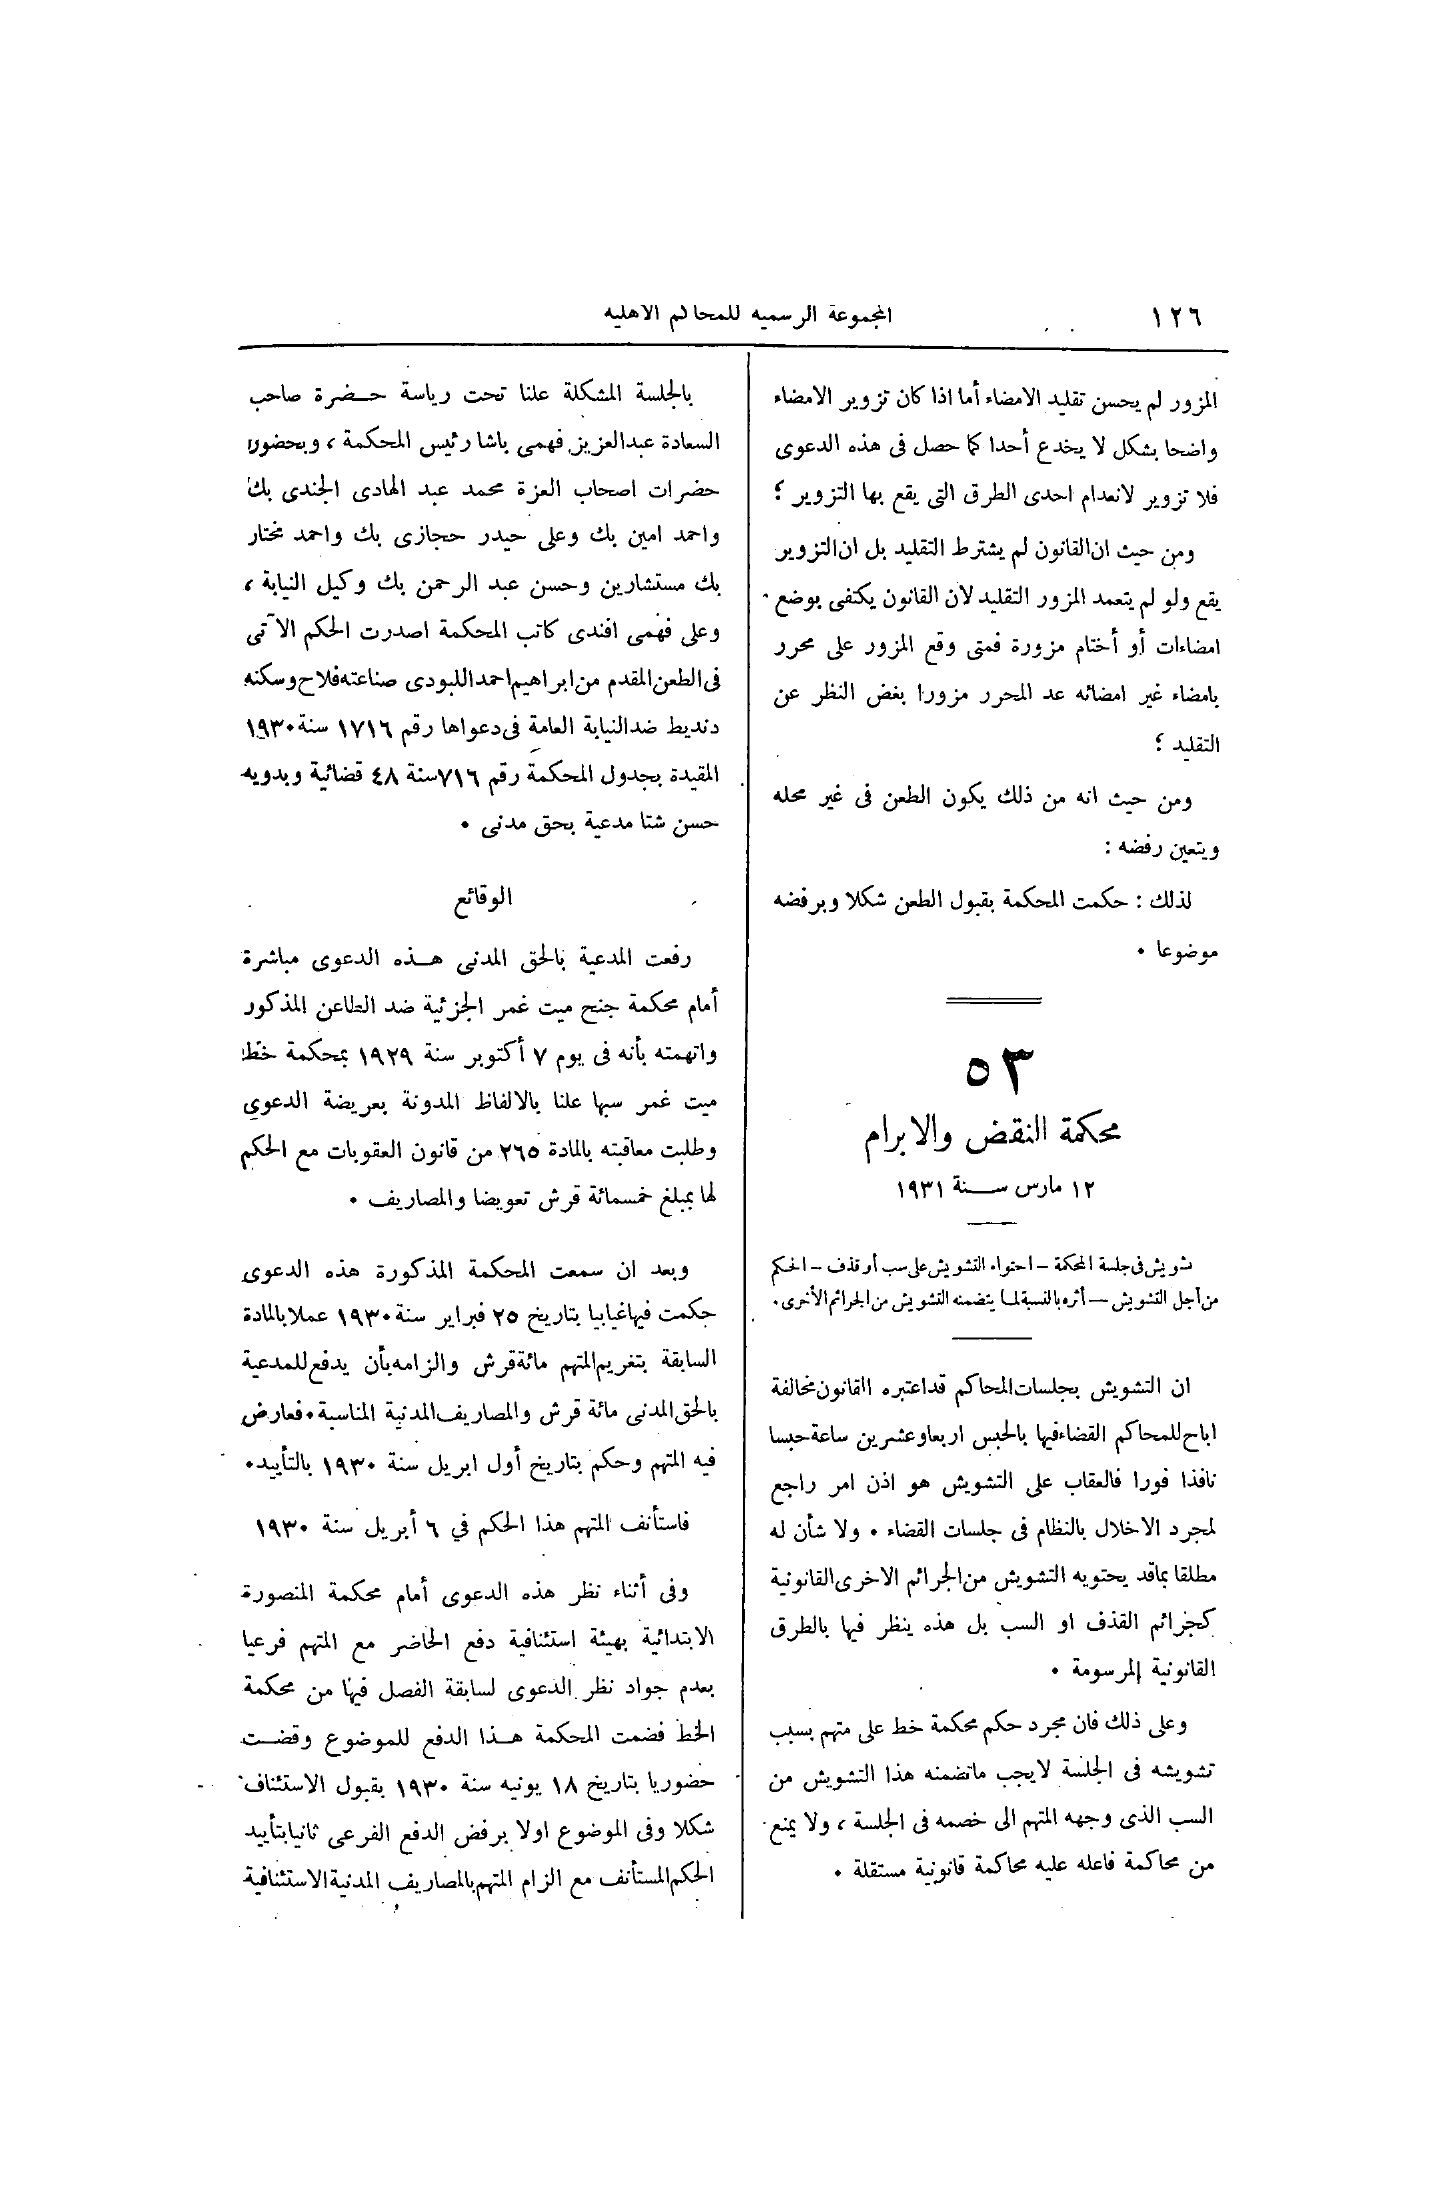 ١٢٦
المجموعة الرسمية للمحاكم الاهلية
المزور لم يحسن تقليد الامضاء أما اذا كان تزوير الامضاء
واضحا بشكل لا يخدع أحدا كما حصل فى هذه الدعوى
فلا تزوير لانعدام احدى الطرق التى يقع بها التزوير ؛
ومن حيث ان القانون لم يشترط التقليد بل ان التزوير
يقع ولو لم يتعمد المزور التقليد لان القانون يكتفى بوضع
امضاءات أو أختام مزورة فمتى وقع المزور على محرر
بامضاء غير امضائه عد المحرر مزورا بغض النظر عن
التقليد ؛
ومن حيث انه من ذلك يكون الطعن فى غير محله
ويتعين رفضه :
لذلك : حكمت المحكمة بقبول الطعن شكلا وبرفضه
موضوعا ٠
٥٣
محكمة النقض والابرام
١٢ مارس سـنة ١٩٣١
تشويش فى جلسة المحكمة – احتواء التشويش على سب أو قذف – الحكم
من أجل التشويش – أثره بالنسبة لما يتضمنه التشويش من الجرائم الأخرى ٠
ان التشويش بجلسات المحاكم قد اعتبره القانون مخالفة
اباح للمحاكم القضاء فيها بالحبس اربعا وعشرين ساعة حبسا
نافذا فورا فالعقاب على التشويش هو اذن امر راجع
لمجرد الاخلال بالنظام فى جلسات القضاء ٠ ولا شأن له
مطلقا بما قد يحتويه التشويش من الجرائم الاخرى القانونية
كجرائم القذف او السب بل هذه ينظر فيها بالطرق
القانونية المرسومة ٠
وعلى ذلك فان مجرد حكم محكمة خط على متهم بسبب
تشويشه فى الجلسة لا يجب ما تضمنه هذا التشويش من
السب الذى وجهه المتهم الى خصمه فى الجلسة ، ولا يمنع
من محاكمة فاعله عليه محاكمة قانونية مستقلة ٠
بالجلسة المشكلة علنا تحت رياسة حـضرة صاحب
السعادة عبدالعزيز فهمى باشا رئيس المحكمة ، وبحضور
حضرات اصحاب العزة محمد عبد الهادى الجندى بك
واحمد امين بك وعلى حيدر حجازى بك واحمد مختار
بك مستشارين وحسن عبد الرحمن بك وكيل النيابة ،
وعلى فهمى افندى كاتب المحكمة اصدرت الحكم الآتى
فى الطعن المقدم من ابراهيم احمد اللبودى صناعته فلاح وسكنه
دنديط ضد النيابة العامة فى دعواها رقم ١٧١٦ سنة ١٩٣٠
المقيدة بجدول المحكمة رقم ٧١٦ سنة ٤٨ قضائية وبدويه
حسن شتا مدعية بحق مدنى ٠
الوقائع
رفعت المدعية بالحق المدنى هـذه الدعوى مباشرة
أمام محكمة جنح ميت غمر الجزئية ضد الطاعن المذكور
واتهمته بأنه فى يوم ٧ أكتوبر سنة ١٩٢٩ بمحكمة خط
ميت غمر سبها علنا بالالفاظ المدونة بعريضة الدعوى
وطلبت معاقبته بالمادة ٢٦٥ من قانون العقوبات مع الحكم
لها بمبلغ خمسمائة قرش تعويضا والمصاريف ٠
وبعد ان سمعت المحكمة المذكورة هذه الدعوى
حكمت فيها غيابيا بتاريخ ٢٥ فبراير سنة ١٩٣٠ عملا بالمادة
السابقة بتغريم المتهم مائة قرش والزامه بأن يدفع للمدعية
بالحق المدنى مائة قرش والمصاريف المدنية المناسبة ٠ فعارض
فيه المتهم وحكم بتاريخ أول ابريل سنة ١٩٣٠ بالتأييد ٠
فاستأنف المتهم هذا الحكم في ٦ أبريل سنة ١٩٣٠
وفى أثناء نظر هذه الدعوى أمام محكمة المنصورة
الابتدائية بهيئة استئنافية دفع الحاضر مع المتهم فرعيا
بعدم جواد نظر الدعوى لسابقة الفصل فيها من محكمة
الخط فضمت المحكمة هـذا الدفع للموضوع وقضـت
حضوريا بتاريخ ١٨ يونيه سنة ١٩٣٠ بقبول الاستئناف
شكلا وفى الموضوع اولا برفض الدفع الفرعى ثانيا بتأييد
الحكم المستأنف مع الزام المتهم بالمصاريف المدنية الاستئنافية